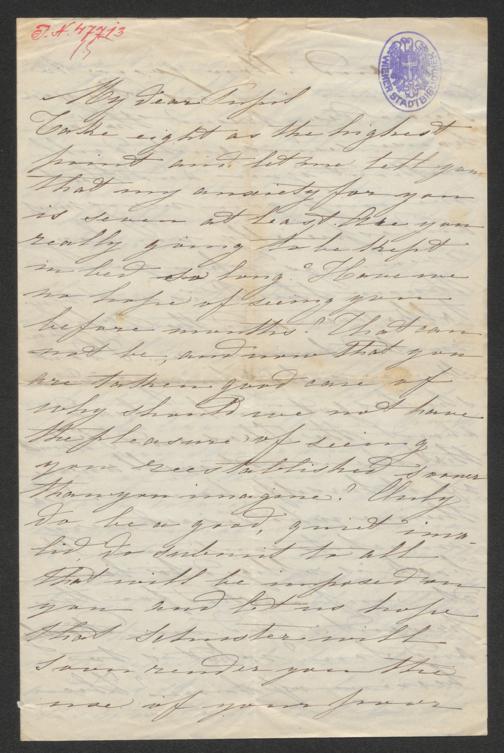 I.N. 47713
WIENER STADTBIBLIOTHEK
My dear Pupil
Take eight as the highest
point and let me tell you
that my anxiety for you
is seven at least. Are you
really going to be kept
in bed so long? Have we
no hope of seeing you
before months? That can
not be, and now that you
are taken good care of
why should we not have
the pleasure of seeing
you reestablished sooner
than you imagine? Only
do be a good, quiet inva-
lid do submit to all
that will be imposed on
you and let us hope
that Schuster will
soon render you the
use of your poor